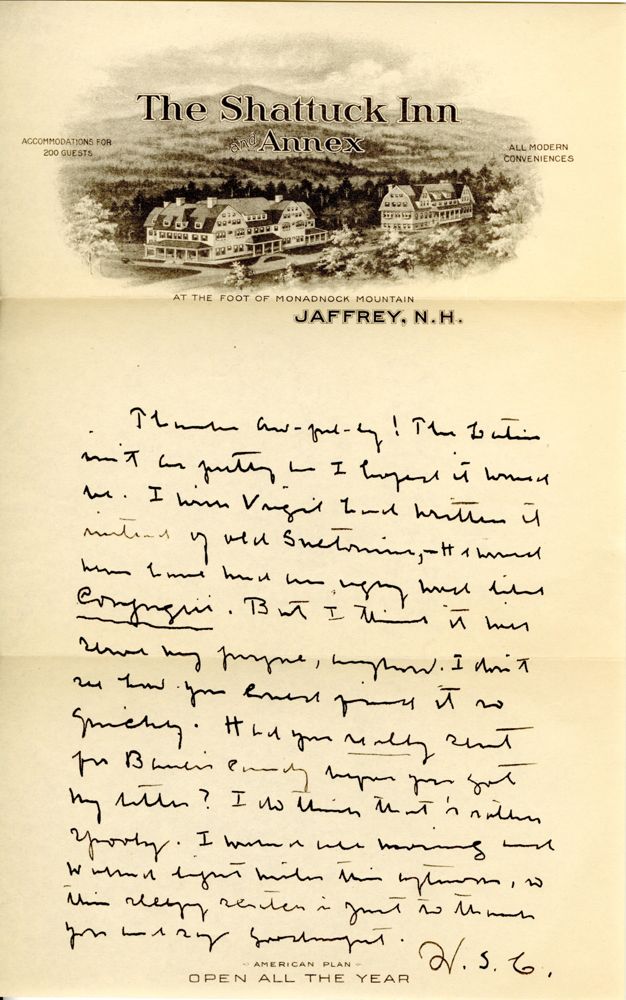 The Shattuck Inn
and Annex
ACCOMMODATIONS FOR
200 GUESTS
ALL MODERN
CONVENIENCES
AT THE FOOT OF MONADNOCK MOUNTAIN
JAFFREY, N.H.
Thanks aw-ful-ly! The Latin
isn't as pretty as I hoped it would
be. I wish Virgil had written it
instead of old Suetonius,—He would
never have had an ugly word like
Conjugii. But I think it will
serve my purpose, anyhow. I don't
see how you could find it so
quickly. Had you really sent
for candy before you got
my letter? I do think that's rather
spooky. I worked all morning and
walked eight miles this afternoon, so
this sleepy is just to thank
you and say goodnight.
W. S. C.
AMERICAN PLAN
OPEN ALL THE YEAR